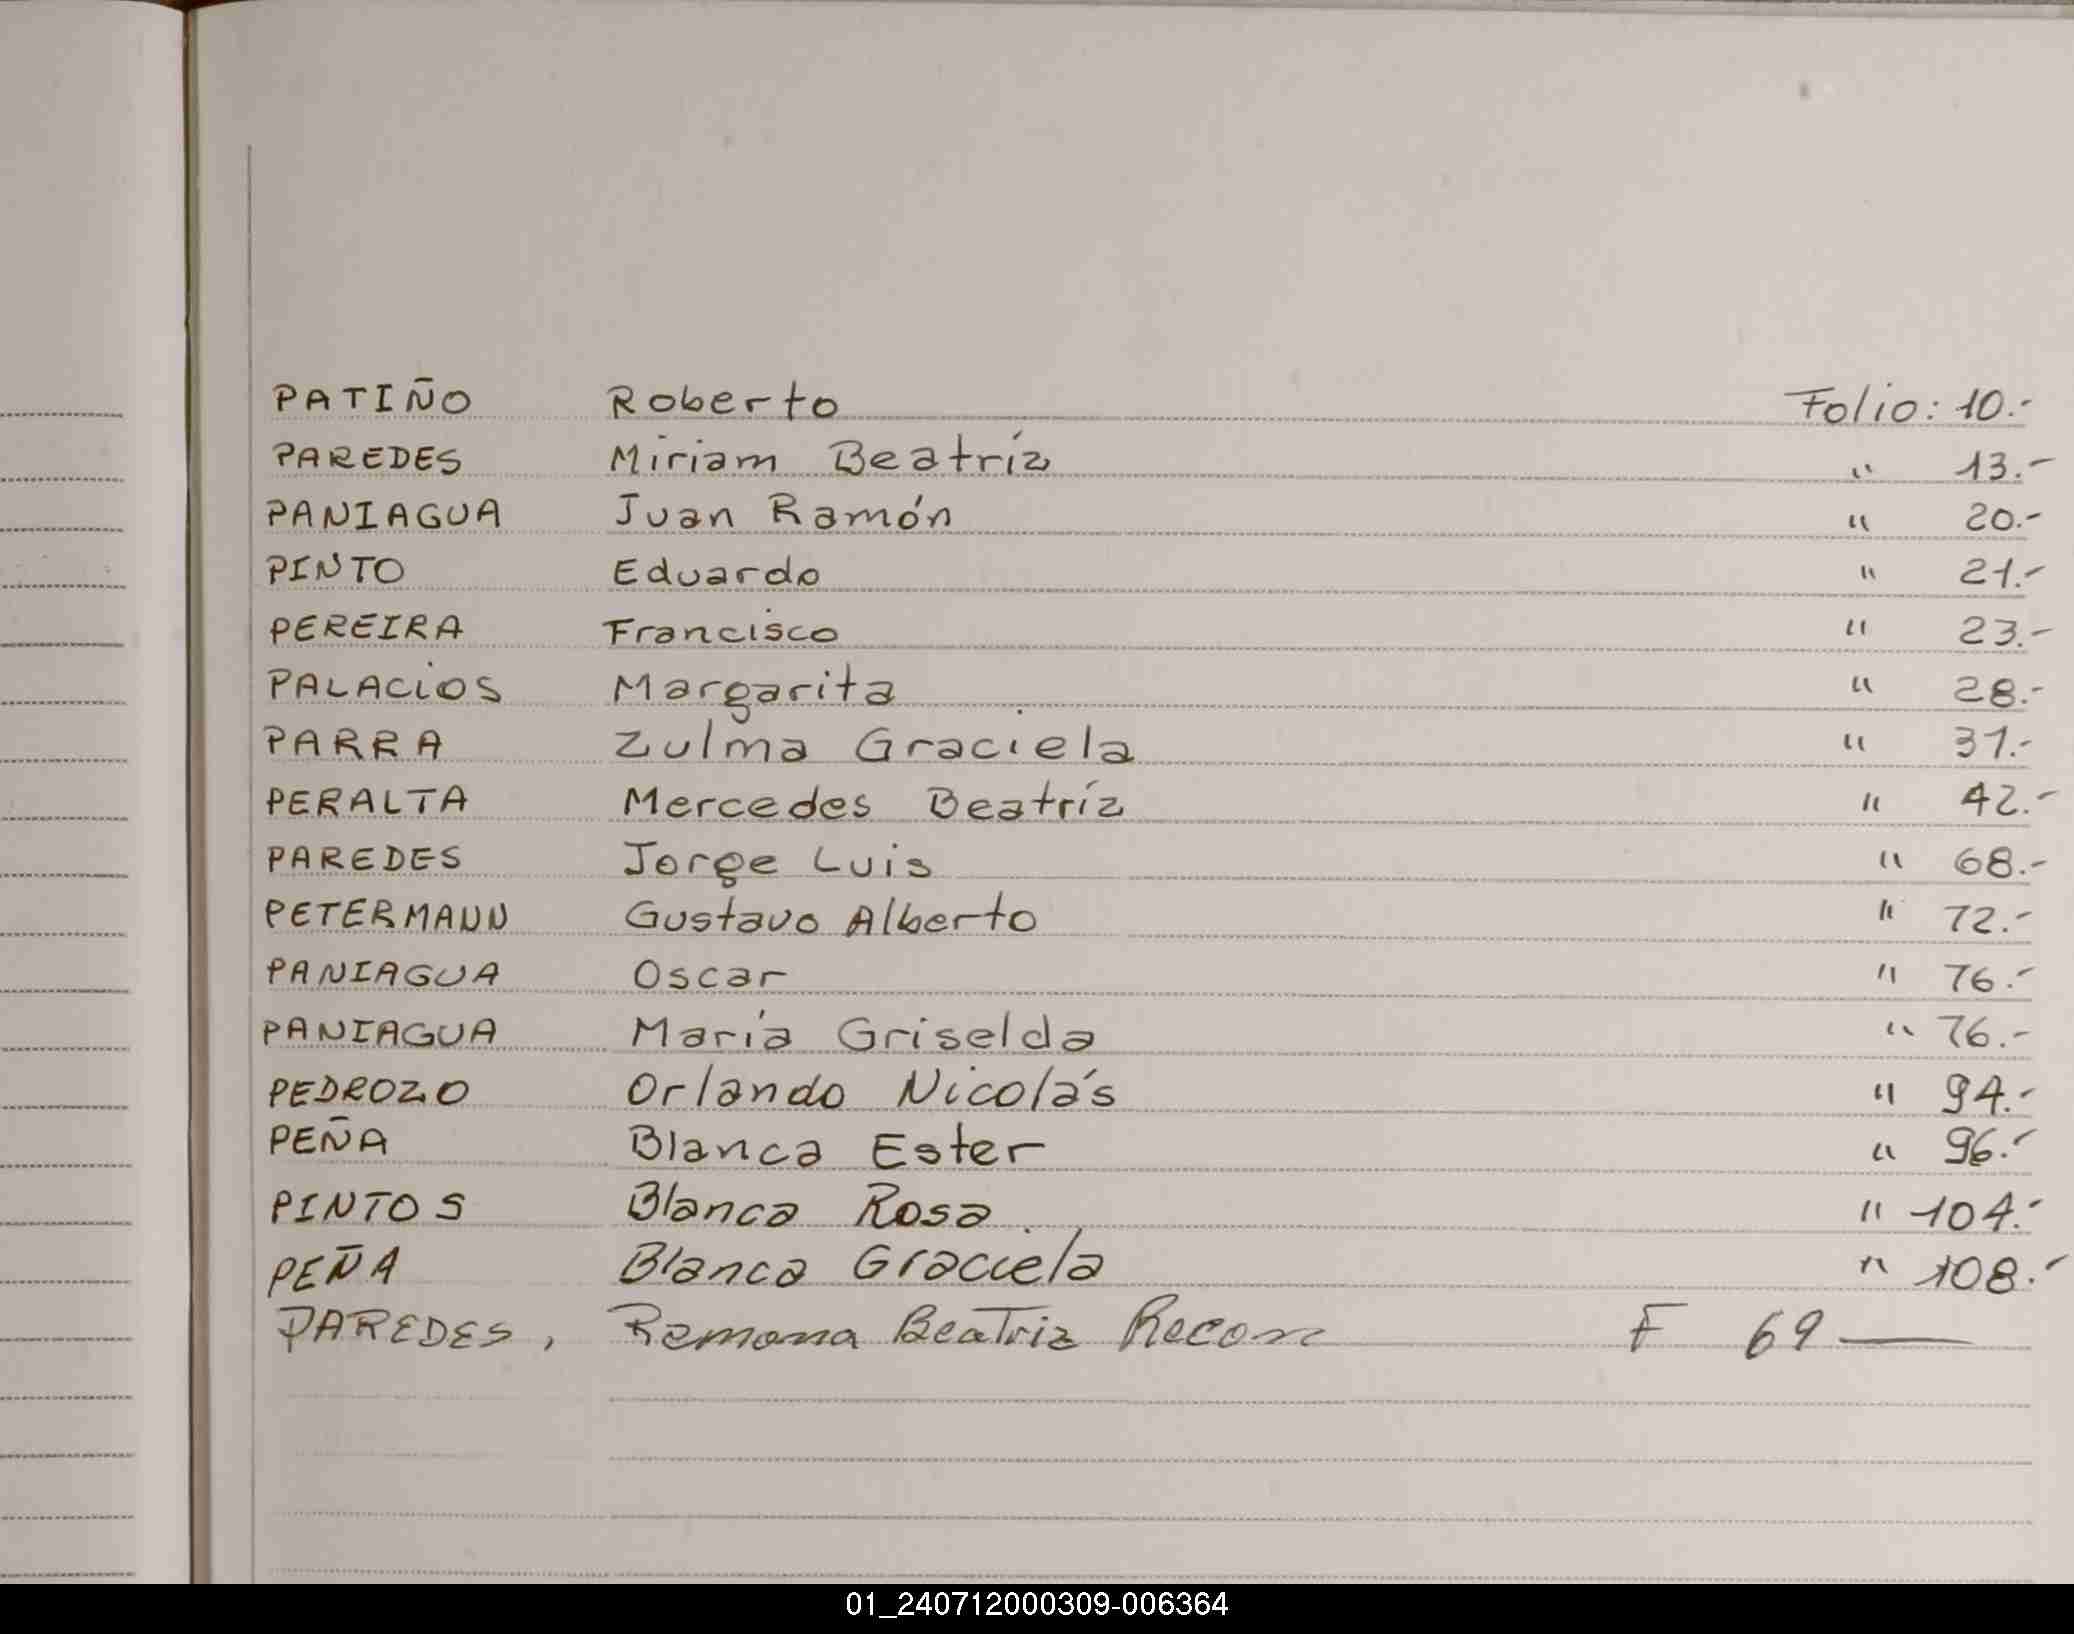 PATIÑO Roberto Folio: 10.-
PAREDES Miriam Beatríz " 13.-
PANIAGUA Juan Ramón " 20.-
PINTO Eduardo " 21.-
PEREIRA Francisco " 23.-
PALACIOS Margarita " 28.-
PARRA Zulma Graciela " 31.-
PERALTA Mercedes Beatríz " 42.-
PAREDES Jorge Luis " 68.-
PETERMANN Gustavo Alberto " 72.-
PANIAGUA Oscar " 76.-
PANIAGUA María Griselda " 76.-
PEDROZO Orlando Nicolás " 94.-
PEÑA Blanca Ester " 96.-
PINTOS Blanca Rosa " 104.-
PEÑA Blanca Graciela " 108.-
PAREDES, Ramona Beatriz Recon F 69
01_240712000309-006364